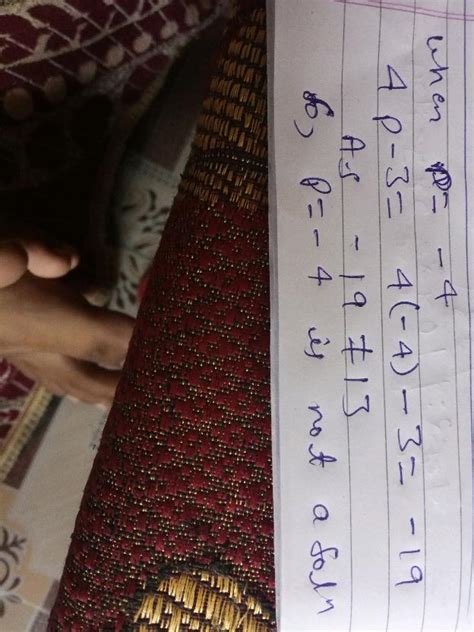 when p = -4
4p-3= 4(-4)-3= -19
As -19 ≠ 13
So, p=-4 is not a soln